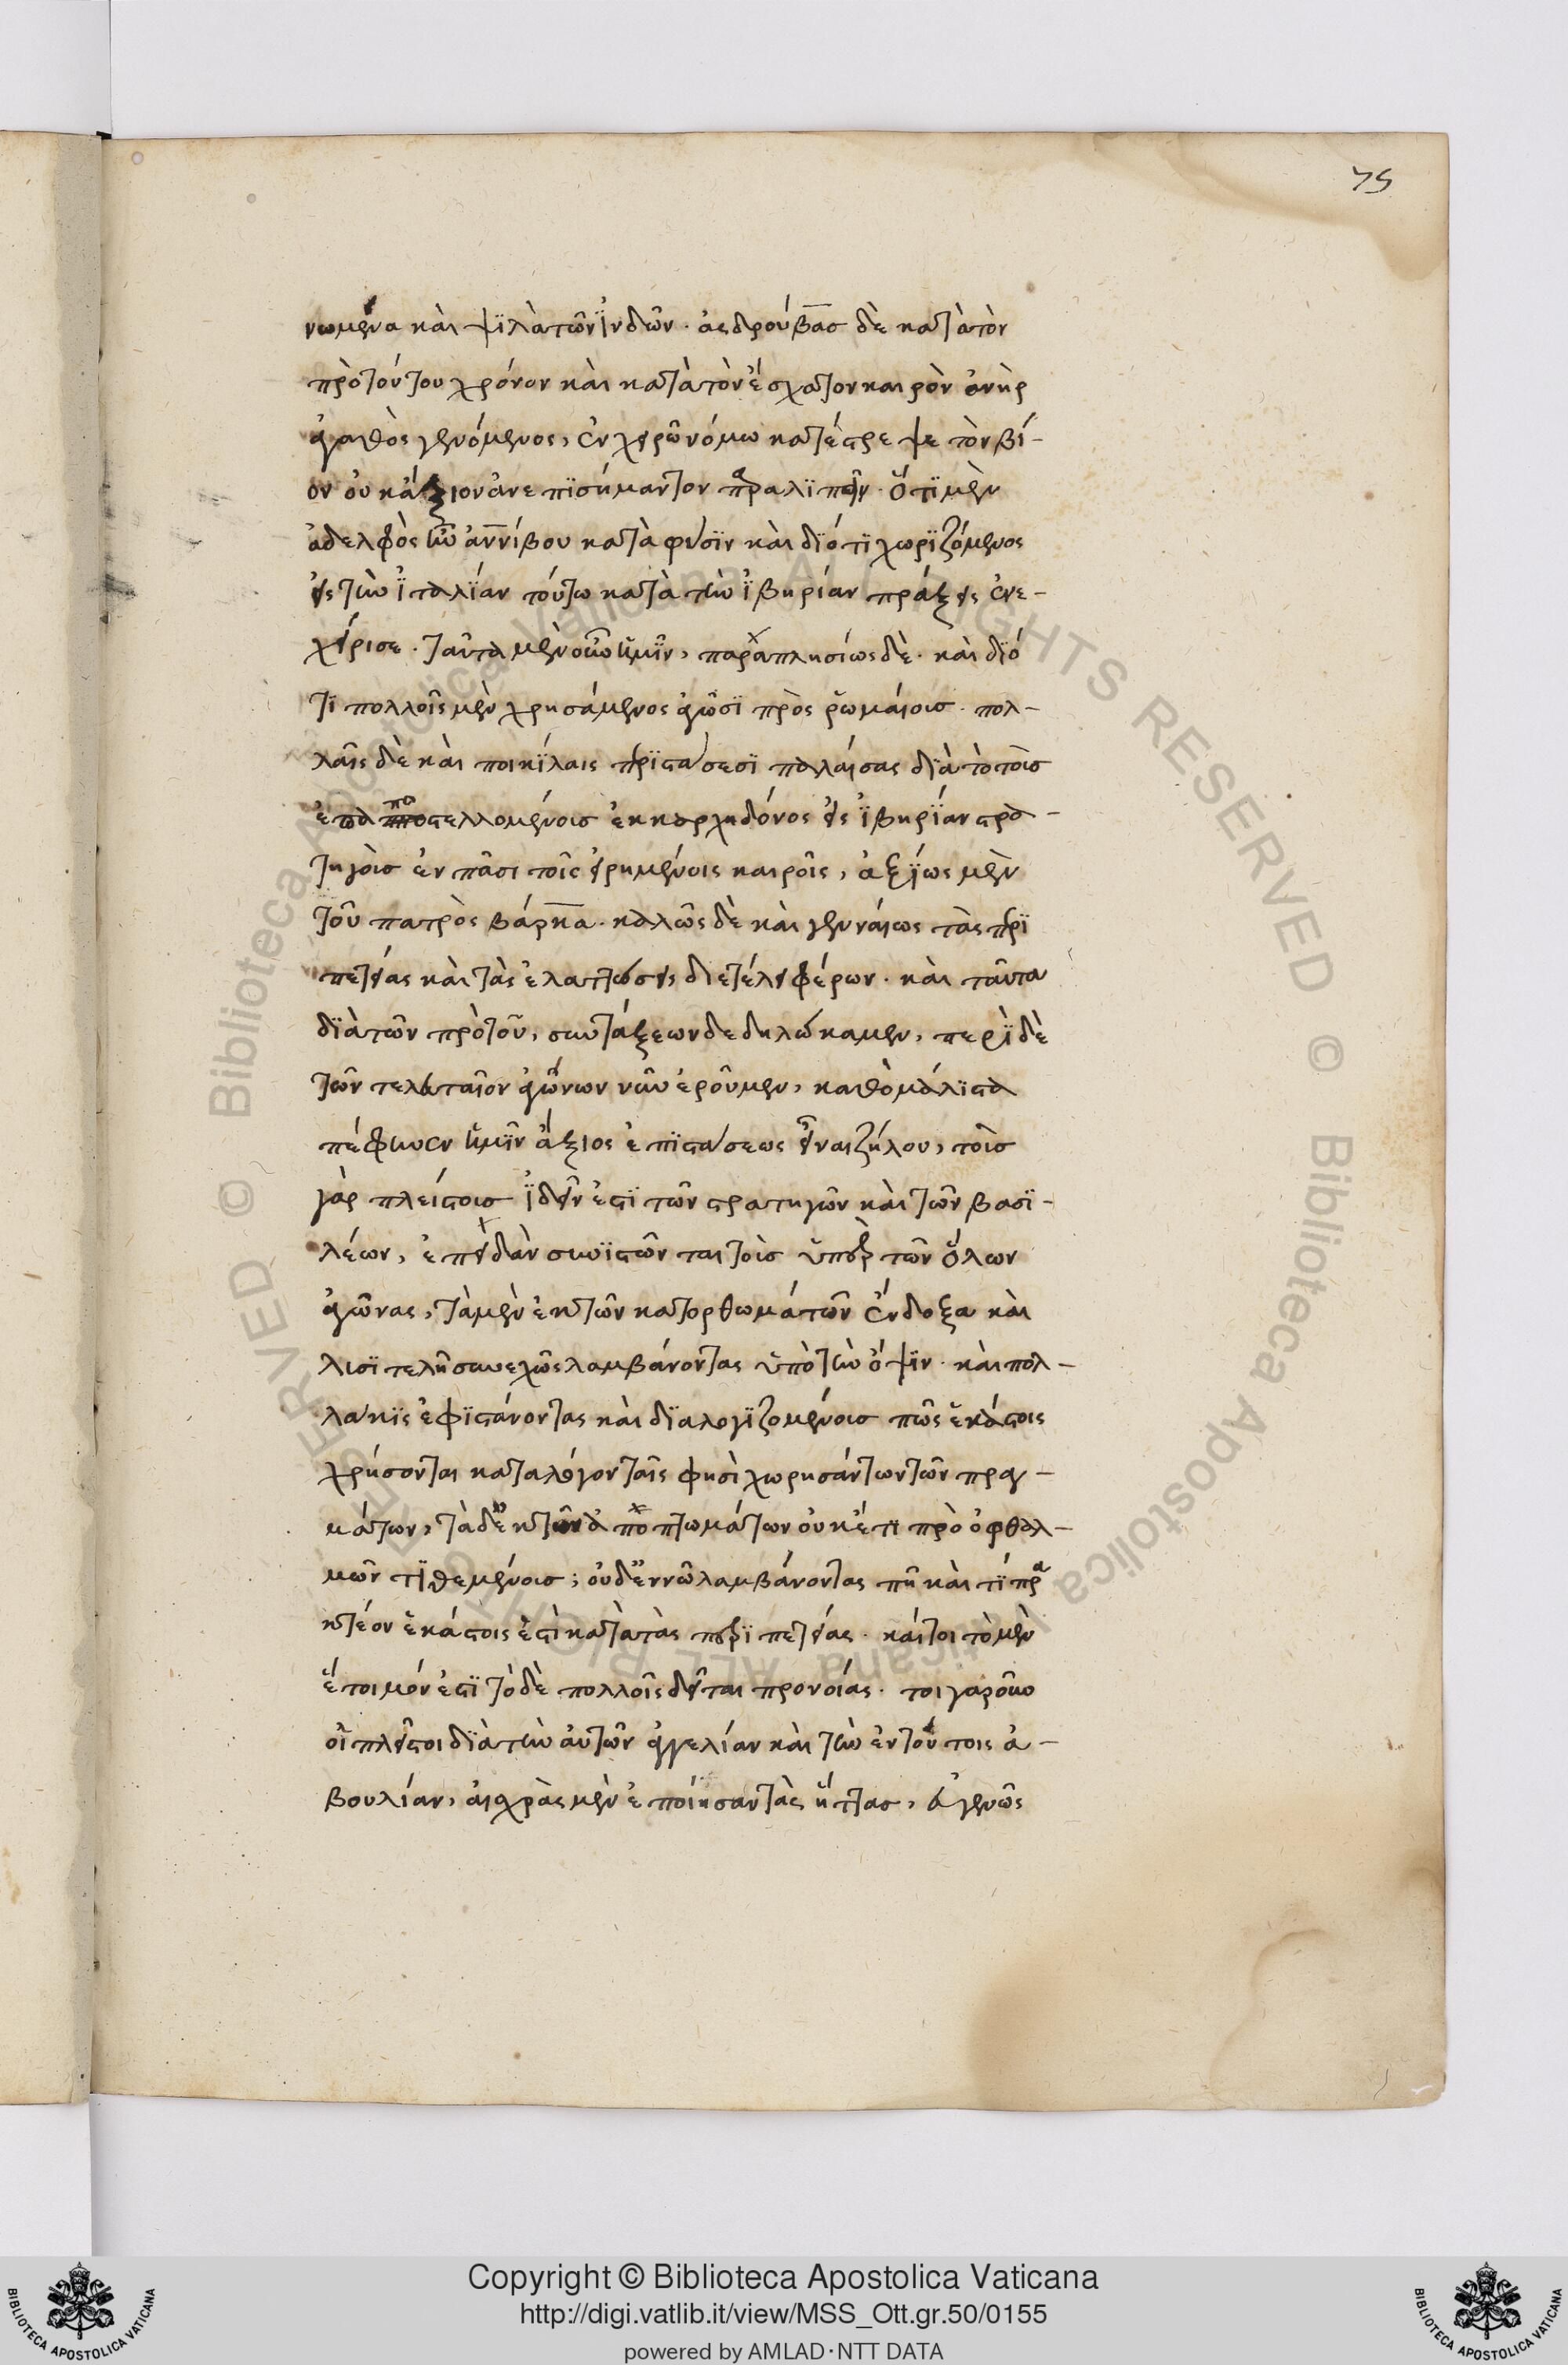 75
νωμένα καὶ ψϊλὰ τῶν Ϊνδῶν. ἀσδρούβας δὲ κατὰ τὸν
πρὸ τούτου χρόνον καὶ κατὰ τὸν ἔσχατον καιρὸν ἀνὴρ
ἀγαθὸς γενόμενος, ἐν χειρῶν νόμω κατέστρεψε τὸν βί-
ον οὐκ ἄξιον ἀνεπϊσήμαντον παραλϊπεῖν. ὅτϊ μὲν
ἀδελφὸς ἦν ἀννίβου κατὰ φύσϊν καὶ δϊότϊ χωρϊζόμενος
εἰς τὴν ϊταλΐαν τούτω κατὰ τὴν ϊβηρίαν πράξεις ἐνε-
χείρισε. ταῦτα μὲν οὖν ἡμῖν, παραπλησίως δὲ. καὶ δϊό
τϊ πολλοῖς μὲν χρησάμενος ἀγῶσϊ πρὸς ῥωμαίοις. πολ-
λαῖς δὲ καὶ ποικΐλαις περϊστάσεσϊ παλαίσας δϊὰ τὸ τοῖς
ἐπαποστελλομένοις ἐκ καρχηδόνος εἰς ϊβηρΐαν στρα-
τηγοῖς ἐν πᾶσι τοῖς εἰρημένοις καιροῖς, ἀξΐως μὲν
τοῦ πατρὸς βάρκα. καλῶς δὲ καὶ γενναίως τὰς περϊ
πετείας καὶ τὰς ἐλαττώσεις διετέλει φέρων. καὶ ταῦτα
δϊὰ τῶν πρὸ τοῦ, συντάξεων δεδηλώκαμεν, περὶ δὲ
τῶν τελευταῖον ἀγώνων νῦν ἐροῦμεν, καθὸ μάλϊστα
πέφηνεν ἡμῖν ἄξιος ἐπϊστάσεως εἶναι ζήλου, τοῖς
γὰρ πλείστοις ϊδεῖν ἐστϊ τῶν στρατηγῶν καὶ τῶν βασϊ-
λέων, ἐπειδὰν συνϊστῶνται τοῖς ὑπὲρ τῶν ὅλων
ἀγῶνας, τὰ μὲν ἐκ τῶν κατορθωμάτων ἔνδοξα καὶ
λισϊτελῆ συνεχῶς λαμβάνοντας ὑπὸ τὴν ὄψϊν. καὶ πολ-
λάκϊς ἐφϊστάνοντας καὶ δϊαλογϊζομένοις πῶς ἑκάστοις
χρήσονται καταλόγον ταῖς φησὶ χωρησάντων τῶν πραγ-
μάτων, τὰ δ' ἐκ τῶν ἀποπτωμάτων οὐκέτϊ πρὸ ὀφθαλ-
μῶν τϊθεμένοις; οὐδ' ἐννῶ λαμβάνοντας πῆ καὶ τί πρα
κτέον ἑκάστοις ἐστὶ κατὰ τὰς περϊπετείας. καίτοι τὸ μὲν
ἕτοιμόν ἐστϊ τὸ δὲ πολλοῖς δεῖται προνοίας. τοιγαροῦν
οἱ πλεῖστοι δϊὰ τὴν αὐτῶν ἀγγελίαν καὶ τὴν ἐν τούτοις ἀ-
βουλίαν, αἰσχρὰς μὲν ἐποίησαν τὰς ἥττας, ἀγενῶς
Copyright © Biblioteca Apostolica Vaticana
http://digi.vatlib.it/view/MSS_Ott.gr.50/0155
powered by AMLAD·NTT DATA